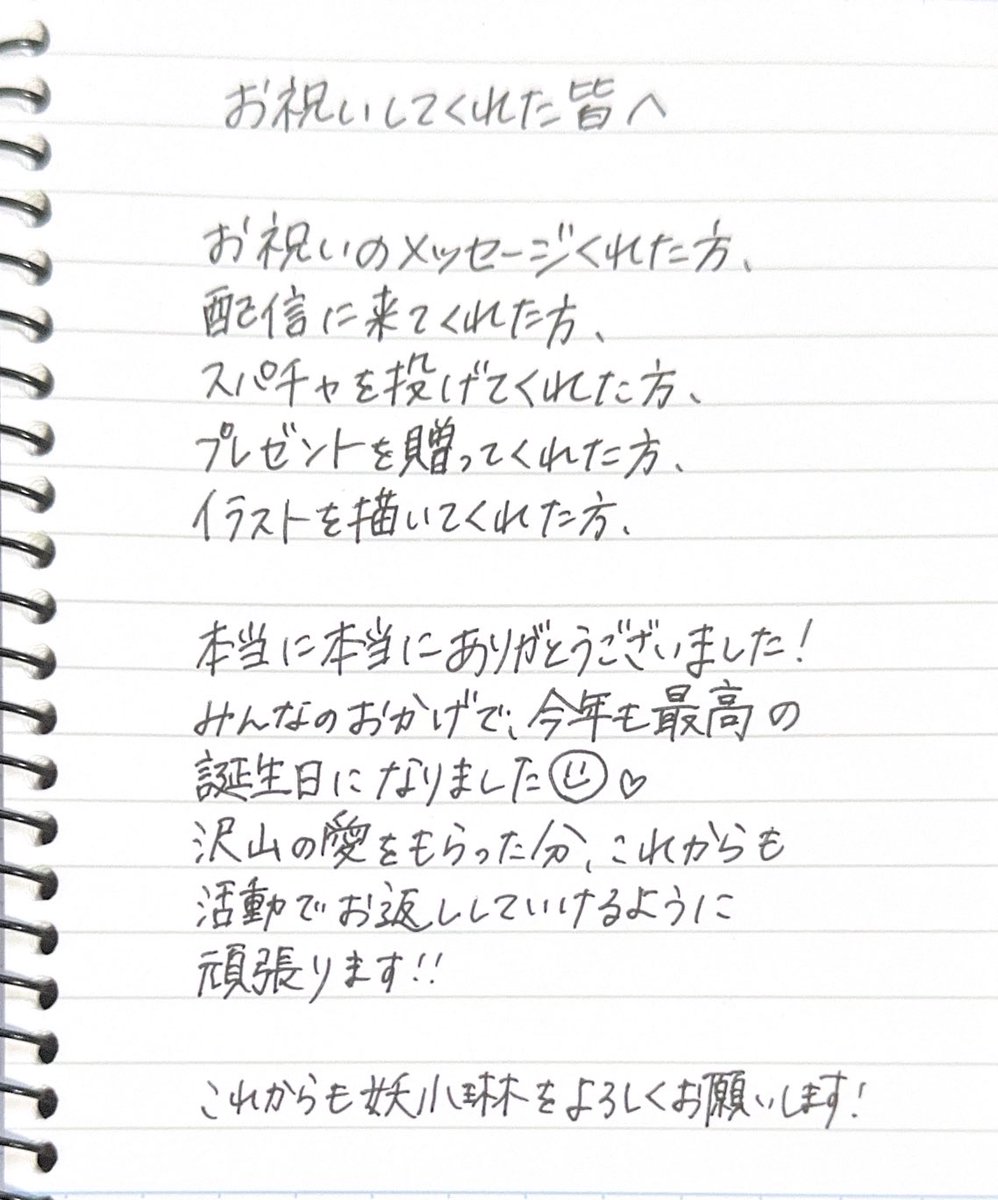 お祝いしてくれた皆へ
お祝いのメッセージくれた方、
配信に来てくれた方、
スパチャを投げてくれた方、
プレゼントを贈ってくれた方、
イラストを描いてくれた方、
本当に本当にありがとうございました!
みんなのおかげで、今年も最高の
誕生日になりました☺♡
沢山の愛をもらった分、これからも
活動でお返ししていけるように
頑張ります!!
これからも妖小琳をよろしくお願いします!